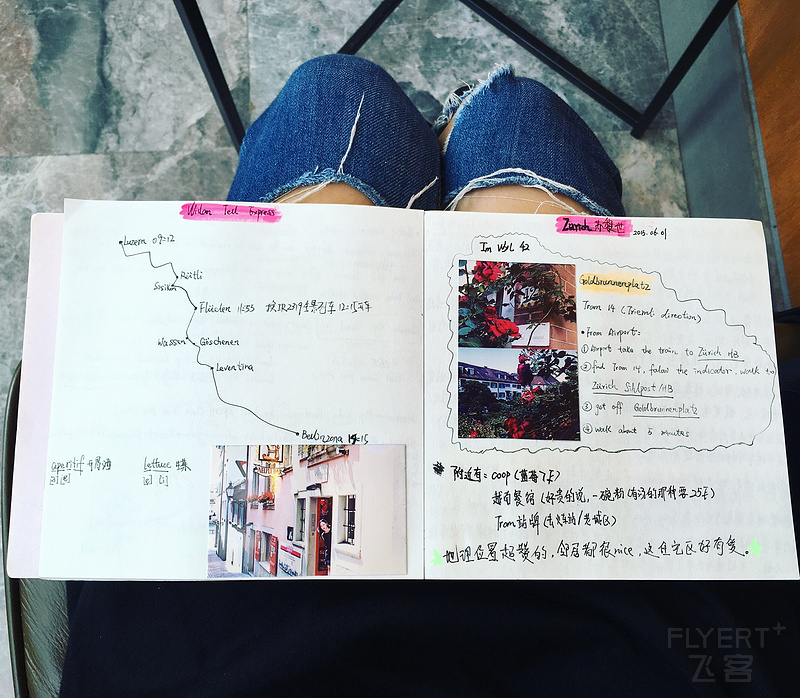 Willan Tell Express
Luzern 09:12
Rütli
Sisikon
Flüelen 11:55 换IR2319全景列车 12:15开车
Wassen Göschenen
Leventina
Bellinzona 15:15
aperitif 开胃酒
lettuce 生菜
Zürich 苏黎世 2015.06.01
Im Wyl 42
Goldbrunnenplatz
Tram 14 (Triemli direction)
• From Airport:
① Airport take the train to Zürich HB
② find Tram 14, follow the indicator, walk to
Zürich Sihlpost/HB
③ get off Goldbrunnenplatz
④ walk about 5 minutes
附近有: coop (蓝莓7F)
越南餐馆 (好贵的说,一碗粉(有汤的那种要25F)
Tram站牌 (去火车站/老城区)
地理位置超赞的,邻居都很nice,这住宅区好有爱。
FLYERT+
飞客